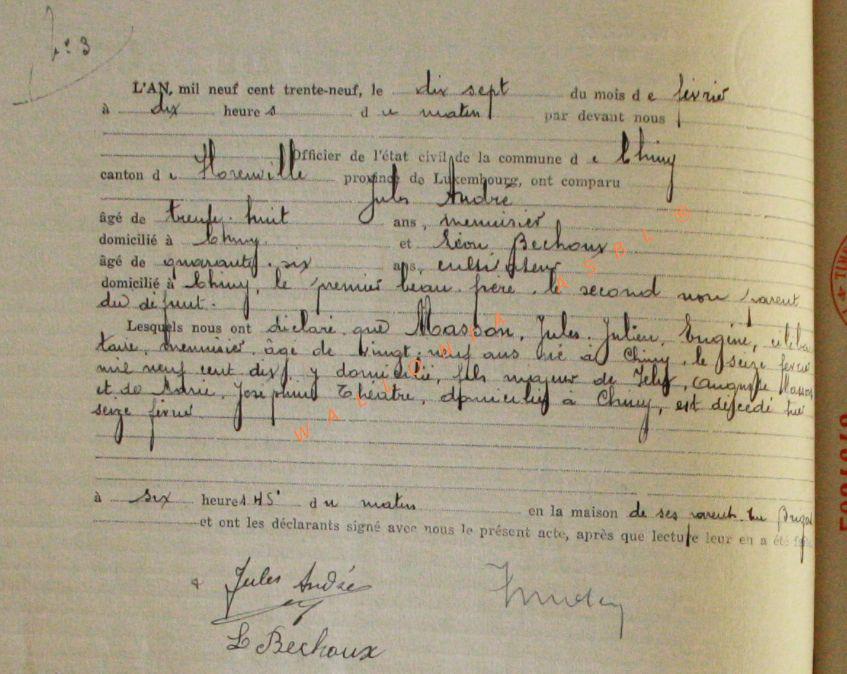 N° 3
L'AN, mil neuf cent trente-neuf, le dix sept du mois d e février
à dix heure s d u matin par devant nous
Officier de l'état civil de la commune d e Chiny
canton d e Florenville province de Luxembourg, ont comparu
Jules André
âgé de trente-huit ans, menuisier
domicilié à Chiny et Léon Bechoux
âgé de quarante-six ans, cultivateur
domicilié à Chiny, le premier beau-frère, le second non parent
du défunt.
Lesquels nous ont déclaré que Masson, Jules, Julien, Eugène, céliba
taire, menuisier, âgé de vingt-neuf ans né à Chiny, le seize février
mil neuf cent dix, y domicilié, fils majeur de Masson
et de Marie, Joséphine Théâtre, domiciliés à Chiny, est décédé hier
seize février
à six heures 45' d u matin en la maison de ses parents
et ont les déclarants signé avec nous le présent acte, après que lecture leur en a été faite
Jules André
L Bechoux
WALLONIA ASBL ©